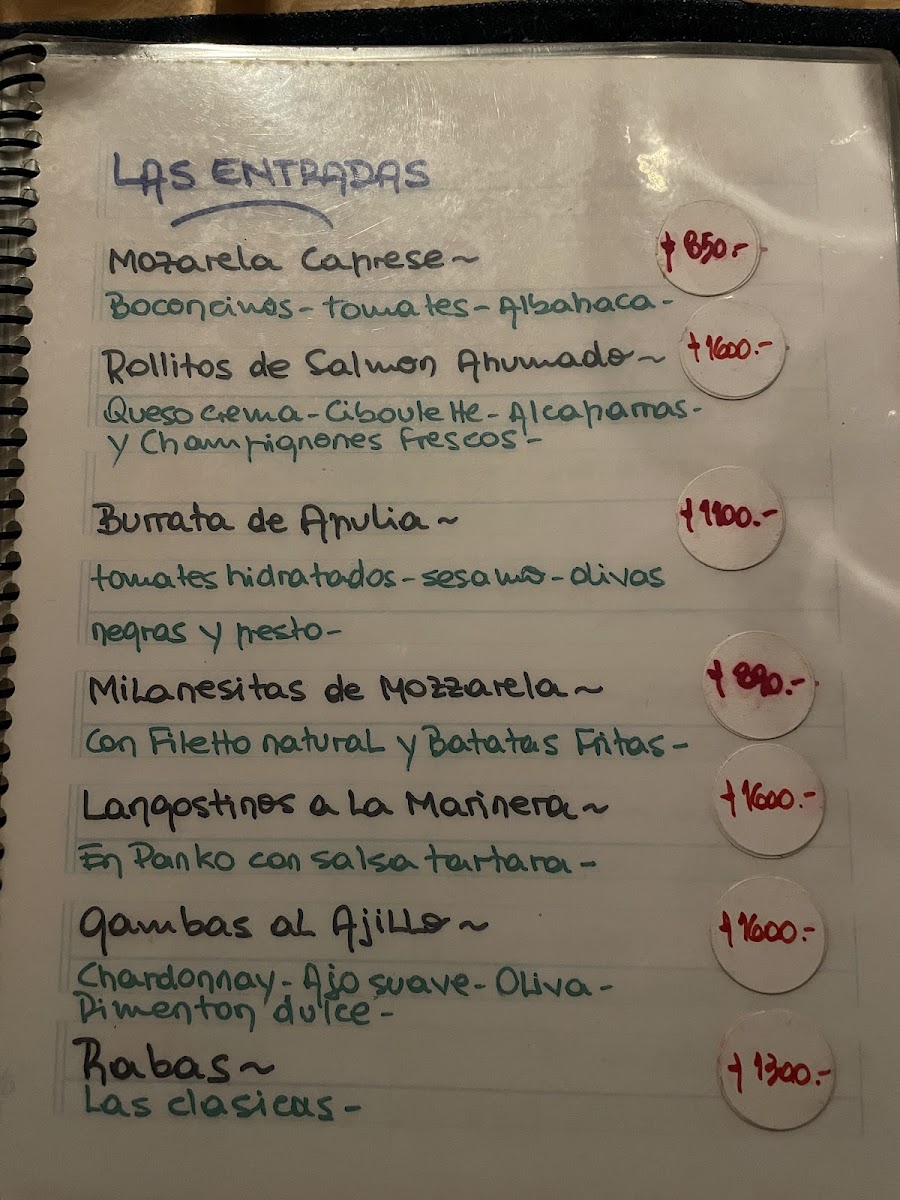 LAS ENTRADAS
Mozarela Caprese ~ $850.-
Boconcinos - tomates - Albahaca -
Rollitos de Salmon Ahumado ~ $1600.-
Queso crema - Ciboulette - Alcaparras -
y Champignones frescos -
Burrata de Apulia ~ $1100.-
tomates hidratados - sesamo - olivas
negras y pesto -
Milanesitas de Mozzarela ~ $890.-
Con Filetto natural y Batatas Fritas -
Langostinos a La Marinera ~ $1600.-
En Panko con salsa tartara -
Gambas al Ajillo ~ $1600.-
Chardonnay - Ajo suave - Oliva -
Pimenton dulce -
Rabas ~ $1300.-
Las clasicas -